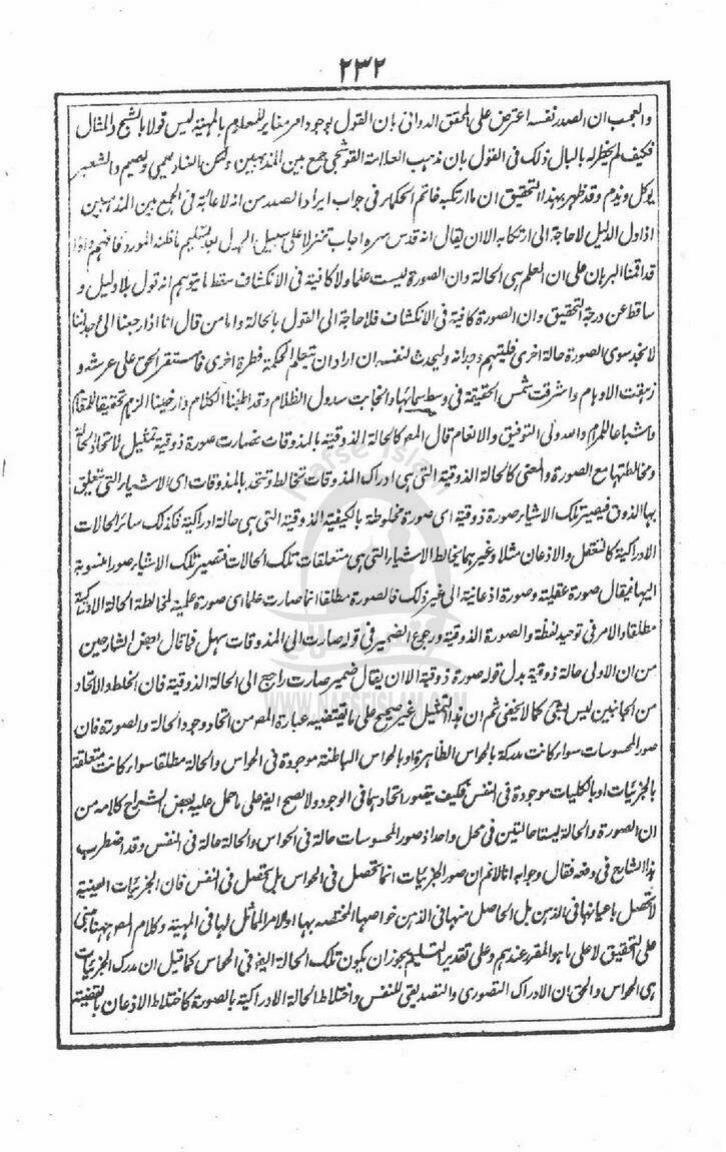 ٢٣٢
والعجب ان الصدر نفسه اعترض على المحقق الدوانى بان القول بوجود امر مغاير للمعلوم بالمهية ليس قولا بالشبح والمثال
فكيف لم يخطر له بالبال ذلك فى القول بان ذهب العلامة القوشجى جمع بين المذهبين ولكن الناس يعمى ويصم والشعير
يوكل ويذم وقد ظهر بهذا التحقيق ان ما ارتكبه خاتم الحكماء فى جواب ايراد الصدر من انه لا عائبة فى الجمع بين المذهبين
اذا دل الدليل لا حاجة الى ارتكابه الا ان يقال انه قدس سره اجاب تنزلا على سبيل الجدل بعد تسليم ما ظنه المورد فافهم واذا
قد اقمنا البرهان على ان العلم هى الحالة وان الصورة ليست علما ولا كافية فى الانكشاف سقط ما يتوهم انه قول بلا دليل و
ساقط عن درجة التحقيق وان الصورة كافية فى الانكشاف فلا حاجة الى القول بالحالة واما من قال انا اذا رجعنا الى وجداننا
لا نجد سوى الصورة حالة اخرى فليتهم وجدانه وليحدث لنفسه ان اراد ان يتعلم الحكمة فطرة اخرى فاستقر الحق على عرشه و
زهقت الاوهام واشرقت شمس الحقيقة فى وسط سمائها وانجابت سدول الظلام وقد اطنبنا الكلام وارخينا الزمام تحقيقا للمقام
واشباعا للمرام والله ولى التوفيق والانعام قال المص كالحالة الذوقية بالمذوقات فصارت صورة ذوقية تمثيل لاتحاد الحالة
ومخالطتها مع الصورة والمعنى كالحالة الذوقية التى هى ادراك المذوقات تخالط وتتحد بالمذوقات اى الاشياء التى يتعلق
بها الذوق فيصير تلك الاشياء صورة ذوقية اى صورة مخلوطة بالكيفية الذوقية التى هى حالة ادراكية فكذلك سائر الحالات
الادراكية كالتعقل والاذعان مثلا وغيرهما يخالط الاشياء التى هى متعلقات تلك الحالات فتصير تلك الاشياء صورا منسوبة
اليها فيقال صورة عقلية وصورة اذعانية الى غير ذلك فالصورة مطلقا انما صارت علما اى صورة علمية لمخالطة الحالة الادراكية
مطلقا والامر فى توحيد لفظة والصورة الذوقية ورجع الضمير فى قوله صارت الى المذوقات سهل فما قال بعض الشارحين
من ان الاولى حالة ذوقية بدل قوله صورة ذوقية الا ان يقال ضمير صارت راجع الى الحالة الذوقية فان الخلط والاتحاد
من الجانبين ليس بشئ كما لا يخفى ثم ان هذا التمثيل غير صحيح على ما يقتضيه عبارة المص من اتحاد وجود الحالة والصورة فان
صور المحسوسات سواء كانت مدركة بالحواس الظاهرة او بالحواس الباطنة موجودة فى الحواس والحالة مطلقا سواء كانت متعلقة
بالجزئيات او بالكليات موجودة فى النفس فكيف يتصور اتحادهما فى الوجود ولا يصح ايضا على ما حمل عليه بعض الشراح كلامه من
ان الصورة والحالة ليستا حالتين فى محل واحد اذ صور المحسوسات حالة فى الحواس والحالة حالة فى النفس وقد اضطرب
هذا الشارح فى دفعه فقال وجوابه انا لا نم ان صور الجزئيات انما تحصل فى الحواس بل يحصل فى النفس فان الجزئيات العينية
لا تحصل باعيانها فى الذهن بل الحاصل منها فى الذهن خواصها المختصة بها او الامر المماثل لها فى المهية وكلام المص ههنا مبنى
على التحقيق لا على ما هو المقرر عندهم وعلى تقدير التسليم يجوز ان يكون تلك الحالة ايضا فى الحواس كما قيل ان مدرك الجزئيات
هى الحواس والحق ان الادراك التصورى والتصديقى للنفس واختلاط الحالة الادراكية بالصورة كاختلاط الاذعان بالقضية
WWW.NAFSEISLAM.COM
Nafse Islam